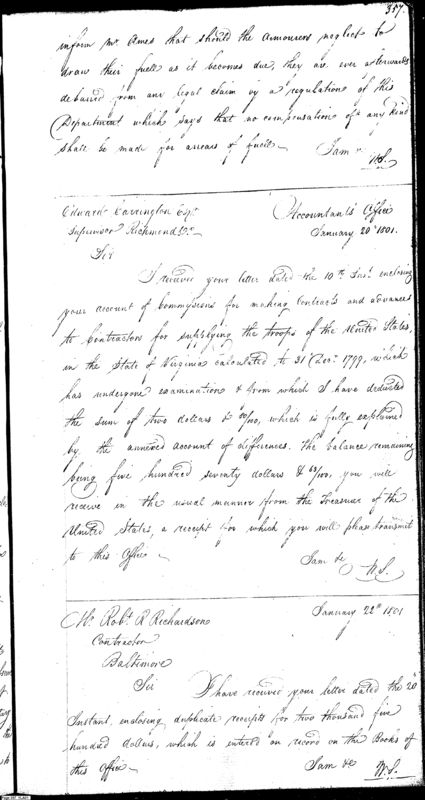 357.
inform Mr. Ames that should the Armourers neglect to
draw their fuell as it becomes due, they are ever afterwards
debarred from any legal claim by a regulation of this
Department which says that no compensation of any kind
shall be made for arrears of fuell
I am &c
W.S.
Edward Carrington Esqr.
Supervisor Richmond Va.
Accountants Office
January 20th 1801.
Sir
I received your letter dated the 10th Inst. enclosing
your account of Commissions for making Contracts and advances
to Contractors for supplying the troops of the United States,
in the State of Virginia calculated to 31 Decr. 1799, which
has undergone examination & from which I have deducted
the sum of two dollars & /100, which is fully explained
by the annexed account of differences. The balance remaining
being five hundred seventy dollars & /100, you will
receive in the usual manner from the Treasurer of the
United States, a receipt for which you will please transmit
to this Office
I am &c
W.S.
Mr. Robt. R Richardson
Contractor
Baltimore
January 22d 1801
Sir I have received your letter dated the 20th
Instant, enclosing duplicate receipts for two thousand five
hundred dollars, which is entered on record on the Books of
this Office
I am &c
W.S.